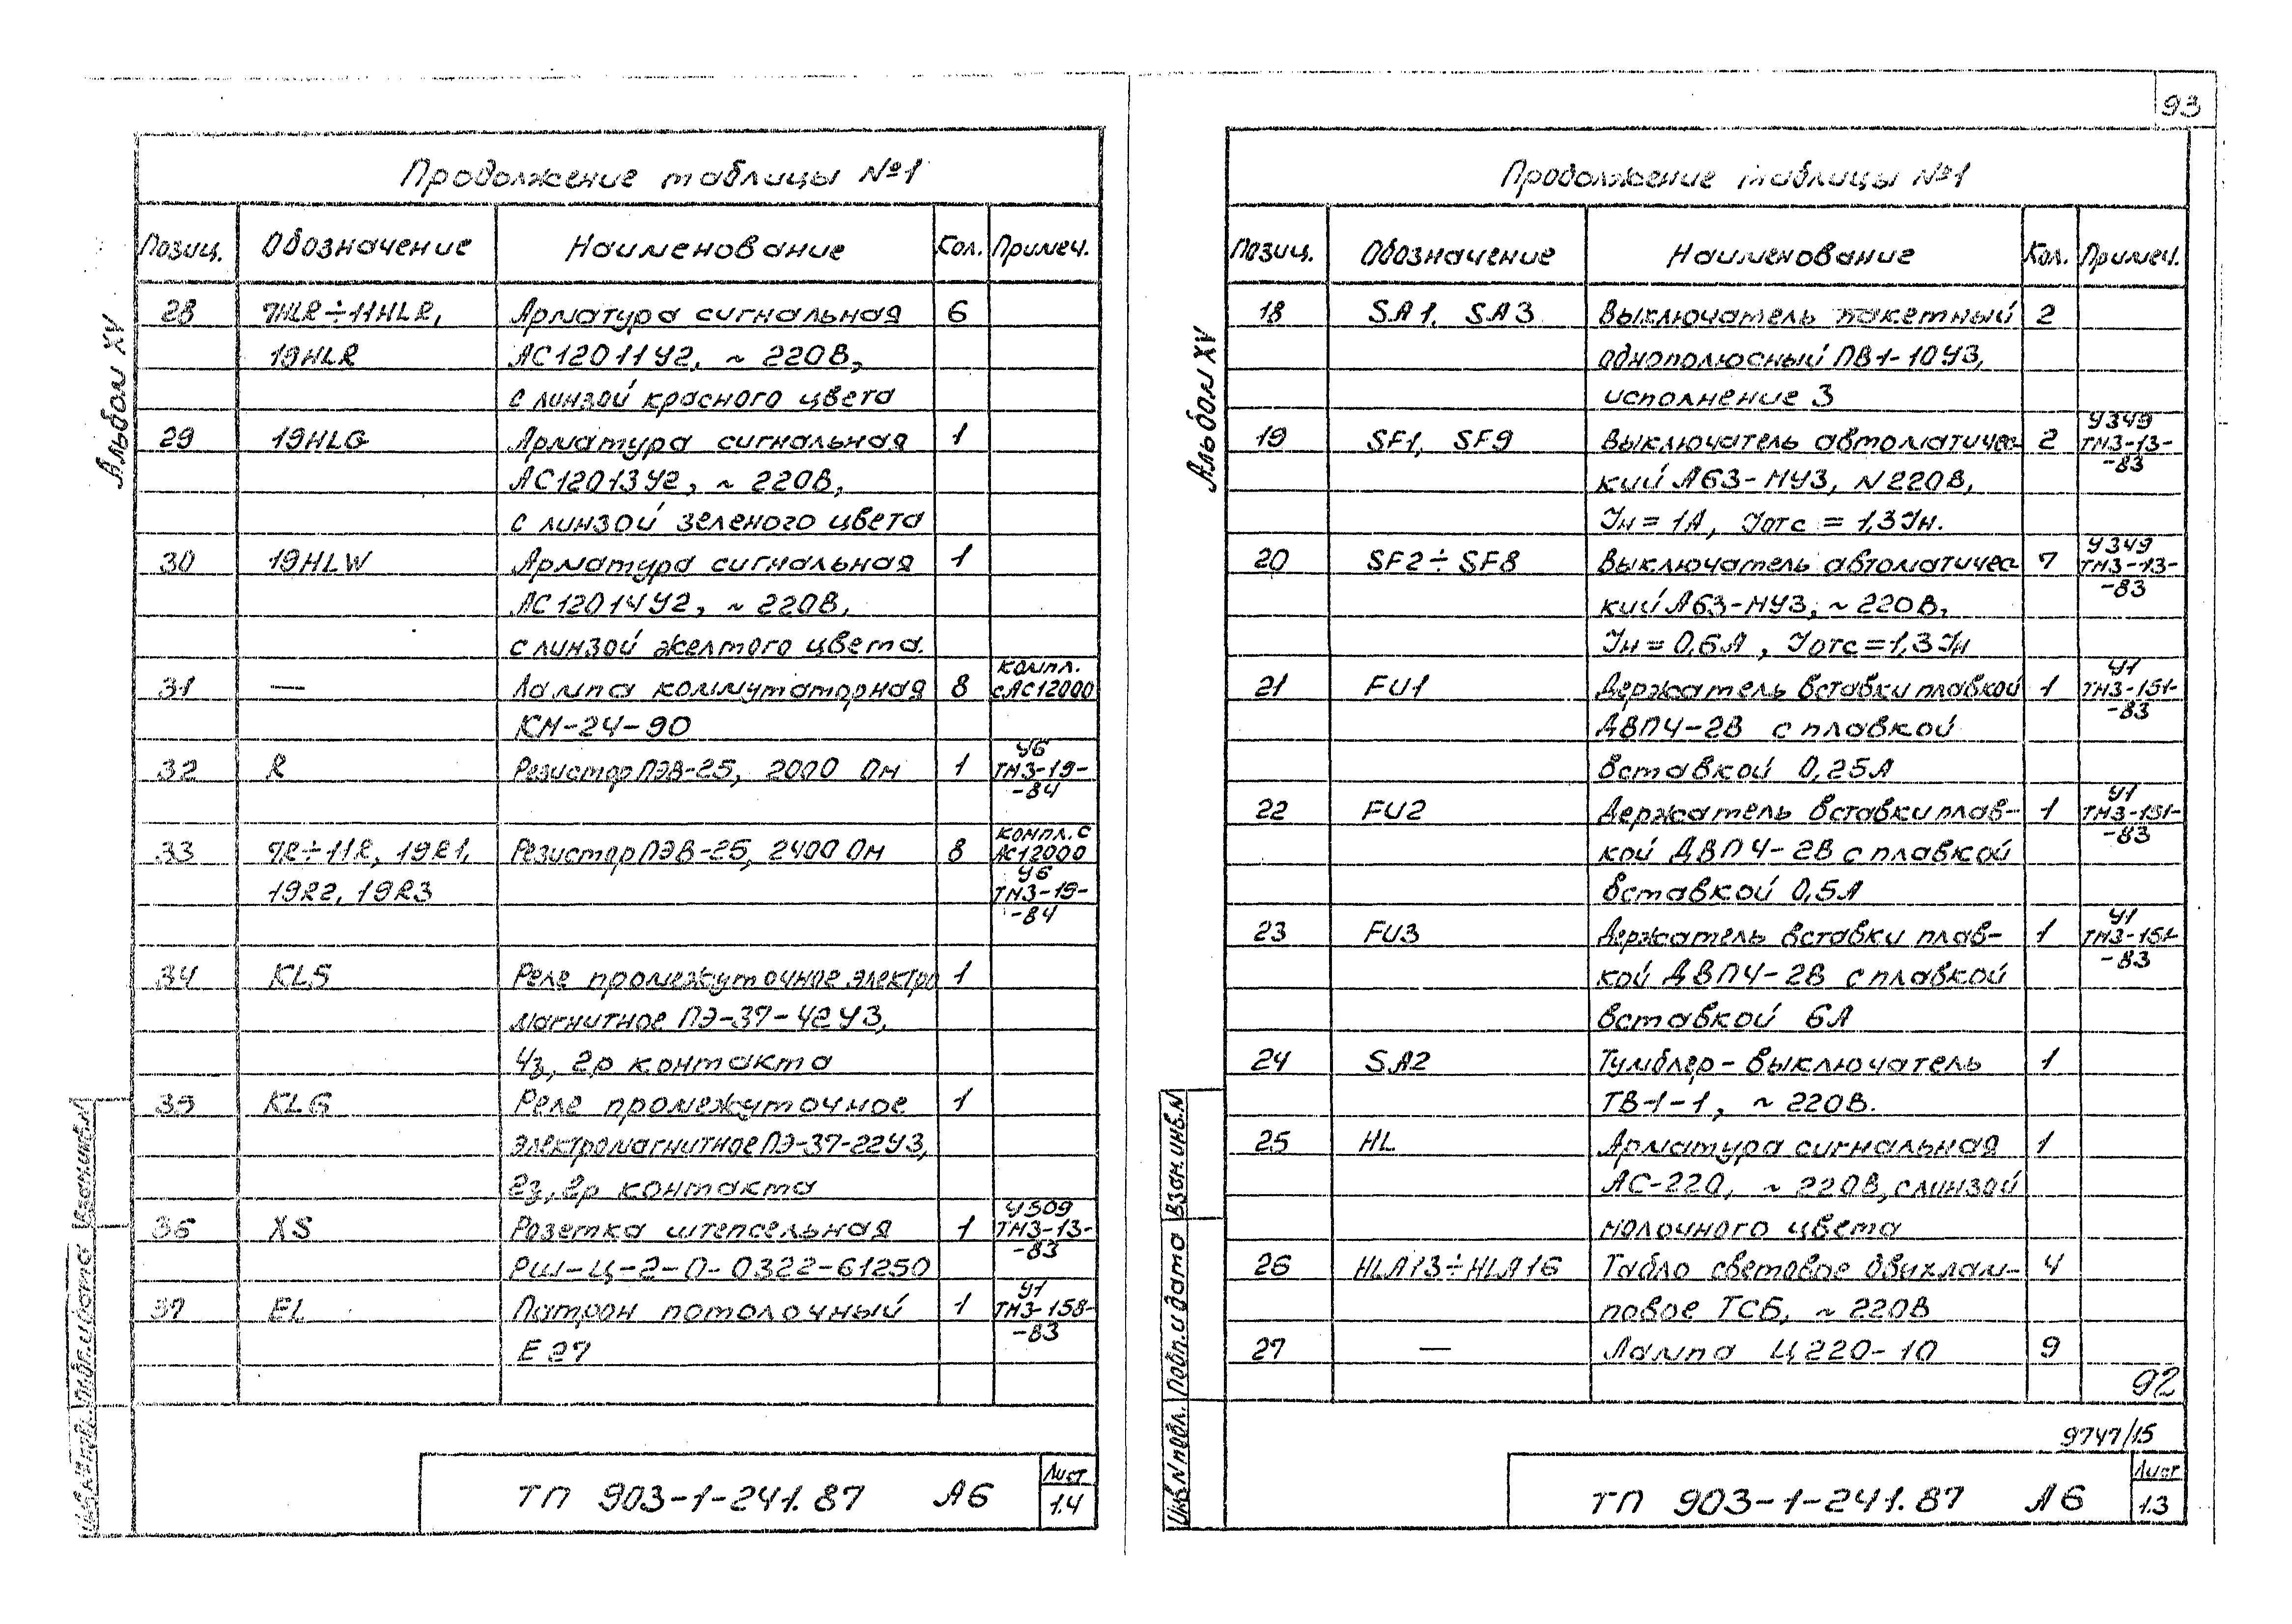 93
Альбом XV
Продолжение таблицы №1
Позиц. Обозначение Наименование Кол. Примеч.
28 7HLR÷11HLR, Арматура сигнальная 6
19HLR АС12011У2, ~ 220В,
с линзой красного цвета
29 19HLG Арматура сигнальная 1
АС12013У2, ~ 220В,
с линзой зеленого цвета
30 19HLW Арматура сигнальная 1
АС12014У2, ~ 220В,
с линзой желтого цвета.
31 — Лампа коммутаторная 8 компл. с АС12000
КМ-24-90
32 R Резистор ПЭВ-25, 2000 Ом 1 У6 ТМ3-19-84
33 7R÷11R, 19R1, Резистор ПЭВ-25, 2400 Ом 8 компл. с АС12000
19R2, 19R3 У6 ТМ3-19-84
34 KL5 Реле промежуточное электро 1
магнитное ПЭ-37-42У3,
4з, 2р контакта
35 KL6 Реле промежуточное 1
электромагнитное ПЭ-37-22У3,
2з, 2р контакта
36 XS Розетка штепсельная 1 У509 ТМ3-13-83
РШ-Ц-2-0-0322-61250
37 EL Патрон потолочный 1 У1 ТМ3-158-83
Е27
ТП 903-1-241.87 А6
Лист
1.4
Альбом XV
Продолжение таблицы №1
Позиц. Обозначение Наименование Кол. Примеч.
18 SA1, SA3 Выключатель пакетный 2
однополюсный ПВ1-10У3,
исполнение 3
19 SF1, SF9 Выключатель автоматичес- 2 У349 ТМ3-13-83
кий А63-МУ3, N220В,
Iн = 1А, Iотс = 1,3Iн.
20 SF2÷SF8 Выключатель автоматичес- 7 У349 ТМ3-13-83
кий А63-МУ3, ~ 220В,
Iн = 0,6А, Iотс = 1,3Iн
21 FU1 Держатель вставки плавкой 1 У1 ТМ3-151-83
ДВП4-2В с плавкой
вставкой 0,25А
22 FU2 Держатель вставки плав- 1 У1 ТМ3-151-83
кой ДВП4-2В с плавкой
вставкой 0,5А
23 FU3 Держатель вставки плав- 1 У1 ТМ3-151-83
кой ДВП4-2В с плавкой
вставкой 6А
24 SA2 Тумблер-выключатель 1
ТВ-1-1, ~ 220В.
25 HL Арматура сигнальная 1
АС-220, ~ 220В, с линзой
молочного цвета
26 HLA13÷HLA16 Табло световое двухлам- 4
повое ТСБ, ~ 220В
27 — Лампа Ц220-10 9
92
9747/15
ТП 903-1-241.87 А6
Лист
1.3
Взам.инв.N
Подп.и дата
Инв.Nподл.
Взам.инв.N
Подп.и дата
Инв.Nподл.